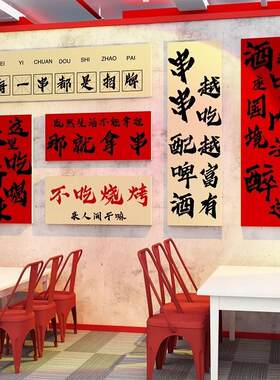 EI YI CHUAN DOU SHI ZHAO PAI
每一串都是招牌
这里
吃喝
既然生活不能拿捏
那就拿串
不吃烧烤
来人间干嘛
串串配啤酒
越吃越富有
酒
座国境